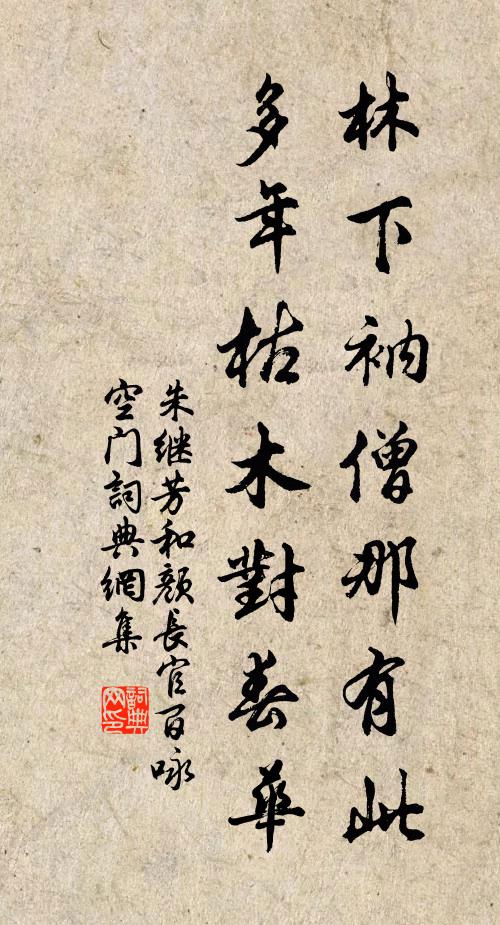 林下衲僧那有此
多年枯木對春華
朱继芳和颜長官百咏
空门詞典網集
詞典
网印